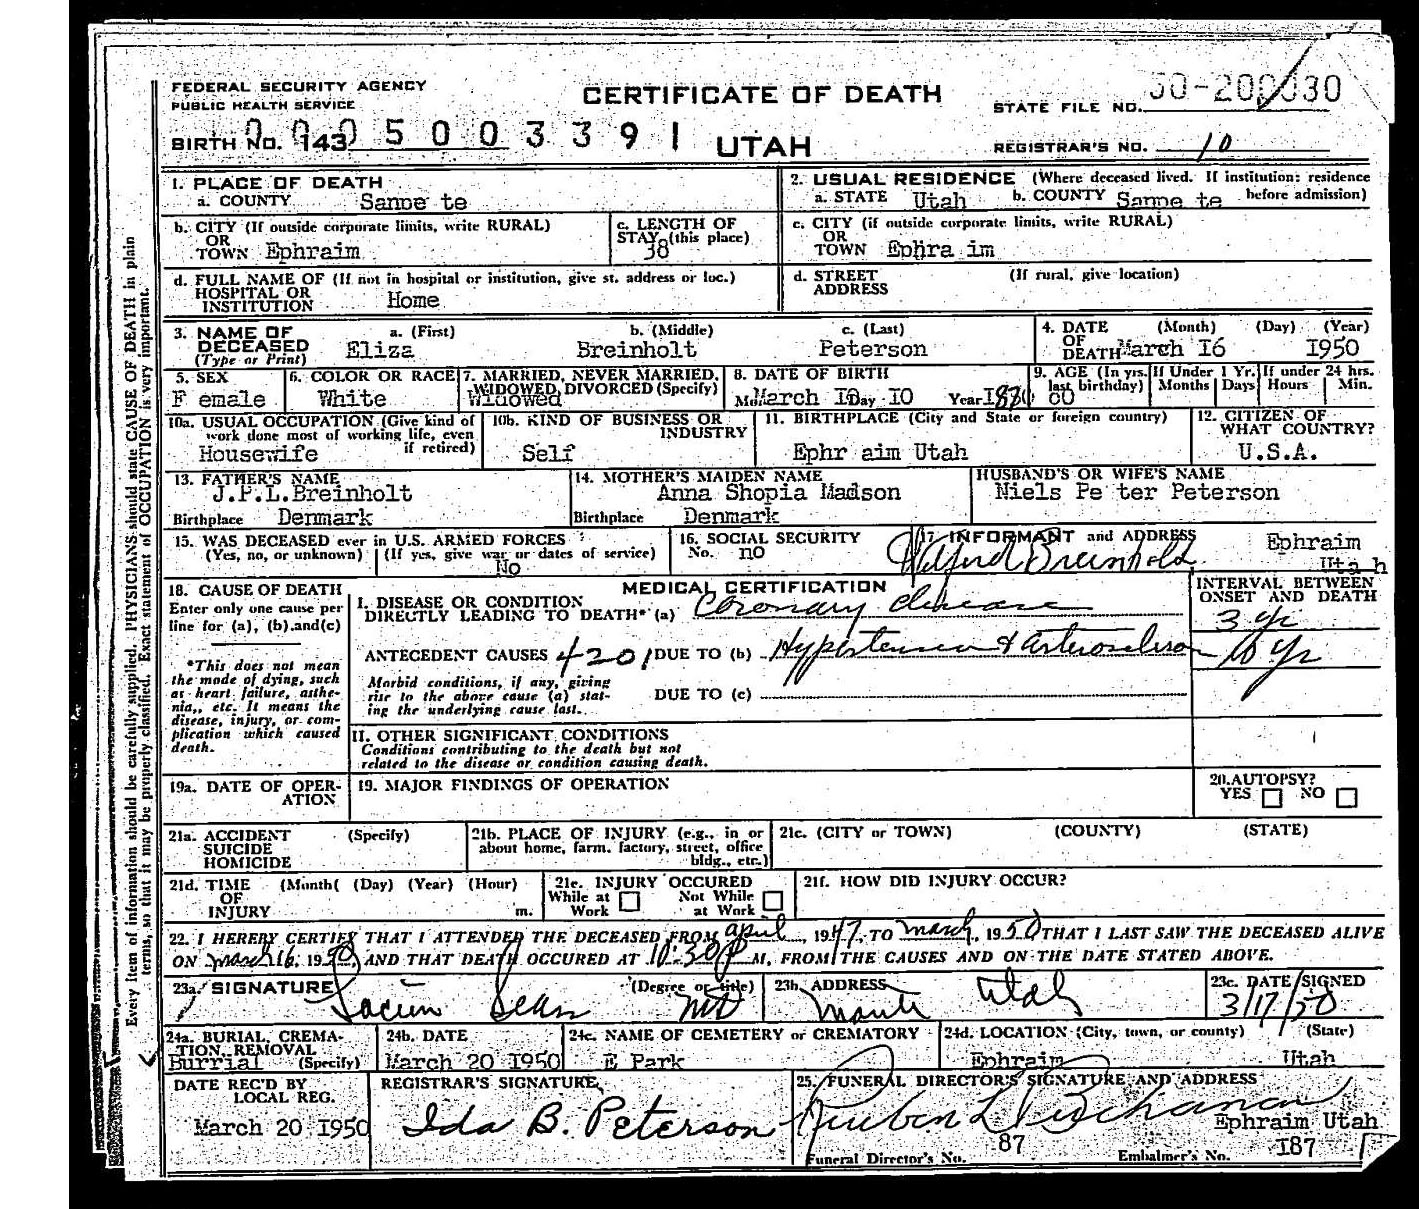 FEDERAL SECURITY AGENCY
PUBLIC HEALTH SERVICE
CERTIFICATE OF DEATH
STATE FILE NO.
BIRTH NO. 143
5 0 0 3 3 9 1
UTAH
REGISTRAR'S NO. 10
1. PLACE OF DEATH
a. COUNTY Sanpe te
2. USUAL RESIDENCE (Where deceased lived. If institution: residence before admission)
a. STATE Utah b. COUNTY Sanpe te
b. CITY (If outside corporate limits, write RURAL)
OR
TOWN Ephraim
c. LENGTH OF
STAY (this place)
38
c. CITY (if outside corporate limits, write RURAL)
OR
TOWN Ephra im
d. FULL NAME OF (If not in hospital or institution, give st. address or loc.)
HOSPITAL OR
INSTITUTION Home
d. STREET (If rural, give location)
ADDRESS
3. NAME OF DECEASED
(Type or Print)
a. (First) b. (Middle) c. (Last)
Eliza Breinholt Peterson
4. DATE OF DEATH (Month) (Day) (Year)
March I6 I950
5. SEX
F emale
6. COLOR OR RACE
White
7. MARRIED, NEVER MARRIED,
WIDOWED, DIVORCED (Specify)
Widowed
8. DATE OF BIRTH
March Day I0 Year
9. AGE (In yrs. last birthday)
If Under 1 Yr. Months Days
If under 24 hrs. Hours Min.
10a. USUAL OCCUPATION (Give kind of
work done most of working life, even
if retired)
Housewife
10b. KIND OF BUSINESS OR
INDUSTRY
Self
11. BIRTHPLACE (City and State or foreign country)
Ephr aim Utah
12. CITIZEN OF
WHAT COUNTRY?
U.S.A.
13. FATHER'S NAME
J.P.L.Breinholt
Birthplace Denmark
14. MOTHER'S MAIDEN NAME
Anna Shopia Madson
Birthplace Denmark
HUSBAND'S OR WIFE'S NAME
Niels Pe ter Peterson
15. WAS DECEASED ever in U.S. ARMED FORCES ?
(Yes, no, or unknown) (If yes, give war or dates of service)
No
16. SOCIAL SECURITY
No. no
17. INFORMANT and ADDRESS
Breinholt
Ephraim
Uta h
18. CAUSE OF DEATH
Enter only one cause per
line for (a), (b) and (c)
*This does not mean
the mode of dying, such
as heart failure, asthe-
nia, etc. It means the
disease, injury, or com-
plication which caused
death.
MEDICAL CERTIFICATION
INTERVAL BETWEEN
ONSET AND DEATH
I. DISEASE OR CONDITION
DIRECTLY LEADING TO DEATH* (a) Coronary disease
3 yr
ANTECEDENT CAUSES 4201 DUE TO (b) Hypertension & arteriosclerosis
10 yr
Morbid conditions, if any, giving
rise to the above cause (a) stat-
ing the underlying cause last.
DUE TO (c)
II. OTHER SIGNIFICANT CONDITIONS
Conditions contributing to the death but not
related to the disease or condition causing death.
19a. DATE OF OPER-
ATION
19. MAJOR FINDINGS OF OPERATION
20. AUTOPSY?
YES NO
21a. ACCIDENT (Specify)
SUICIDE
HOMICIDE
21b. PLACE OF INJURY (e.g., in or
about home, farm, factory, street, office
bldg., etc.)
21c. (CITY or TOWN) (COUNTY) (STATE)
21d. TIME (Month( (Day) (Year) (Hour)
OF
INJURY m.
21e. INJURY OCCURED
While at Work Not While at Work
21f. HOW DID INJURY OCCUR?
22. I HEREBY CERTIFY THAT I ATTENDED THE DECEASED FROM april, 1947, TO march, 1950 THAT I LAST SAW THE DECEASED ALIVE
ON march 16, 1950, AND THAT DEATH OCCURED AT 10:30 p M, FROM THE CAUSES AND ON THE DATE STATED ABOVE.
23a. SIGNATURE (Degree or title)
MD
23b. ADDRESS
Manti Utah
23c. DATE SIGNED
3/17/50
24a. BURIAL, CREMA-
TION, REMOVAL
Burrial (Specify)
24b. DATE
March 20 I950
24c. NAME OF CEMETERY or CREMATORY
E Park
24d. LOCATION (City, town, or county) (State)
Ephraim Utah
DATE REC'D BY
LOCAL REG.
March 20 I950
REGISTRAR'S SIGNATURE
Ida B. Peterson
25. FUNERAL DIRECTOR'S SIGNATURE AND ADDRESS
Ephraim Utah
Funeral Director's No. 87
Embalmer's No. I87
Every item of information should be carefully supplied. PHYSICIANS should state CAUSE OF DEATH in plain
terms, so that it may be properly classified. Exact statement of OCCUPATION is very important.